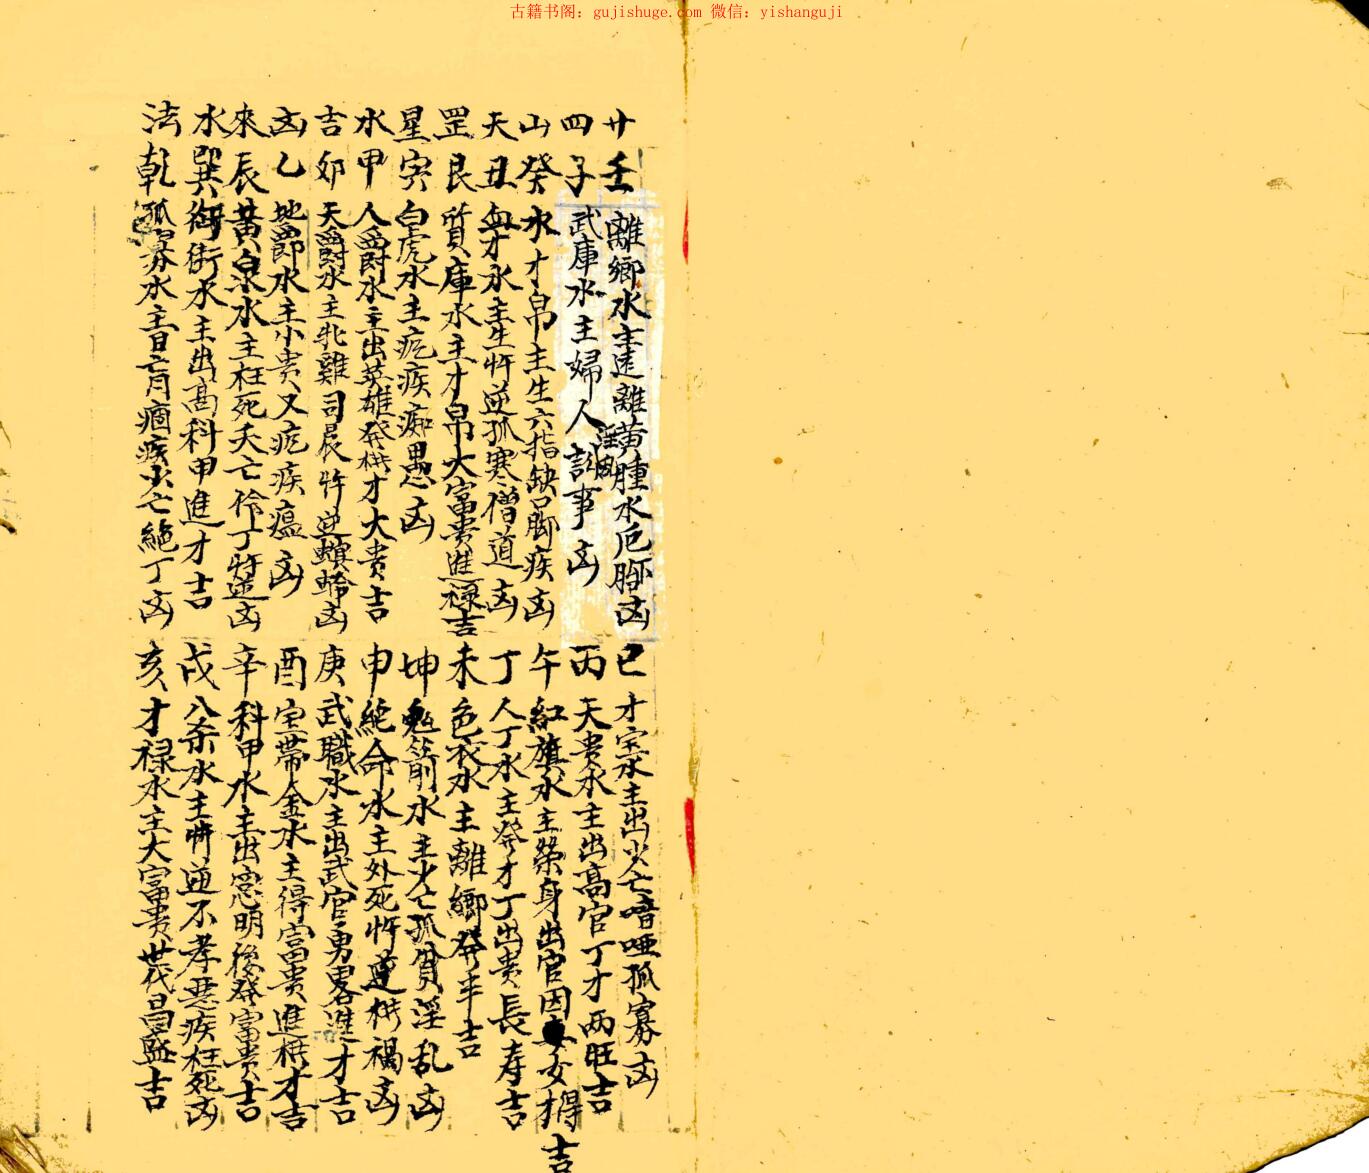 古籍书阁：gujishuge.com 微信：yishanguji
廿四山天罡星水吉凶來水法
壬 離鄉水主遠離黃腫水厄 凶
子 武庫水主婦人訟事淫凶
癸 水才帛主生六指缺口脚疾凶
丑 血才水主生忤逆孤寒僧道凶
艮 質庫水主才帛大富貴進禄吉
寅 白虎水主疙疾痴愚凶
甲 人爵水主出英雄發才大貴吉
卯 天爵水主牝雞司晨忤逆螟蛉凶
乙 地爵水主小貴又疙疾瘟凶
辰 黃泉水主枉死夭亡伶丁忤逆凶
巽 御街水主出高科甲進才吉
乾 孤寡水主痼疾少亡絕丁凶
巳 才宝水主出少亡喑啞孤寡凶
丙 天貴水主出高官丁才兩旺吉
午 紅旗水主榮身出官因女得吉
丁 人丁水主發才丁出貴長寿吉
未 色衣水主離鄉發半吉
坤 水主少亡孤貧淫乱凶
申 絕命水主外死忤逆禍凶
庚 武職水主出武官勇畧進才吉
酉 宝帶金水主得富貴進才吉
辛 科甲水主出窓明後發富貴吉
戌 八杀水主忤逆不孝惡疾枉死凶
亥 才禄水主大富貴世代昌盛吉